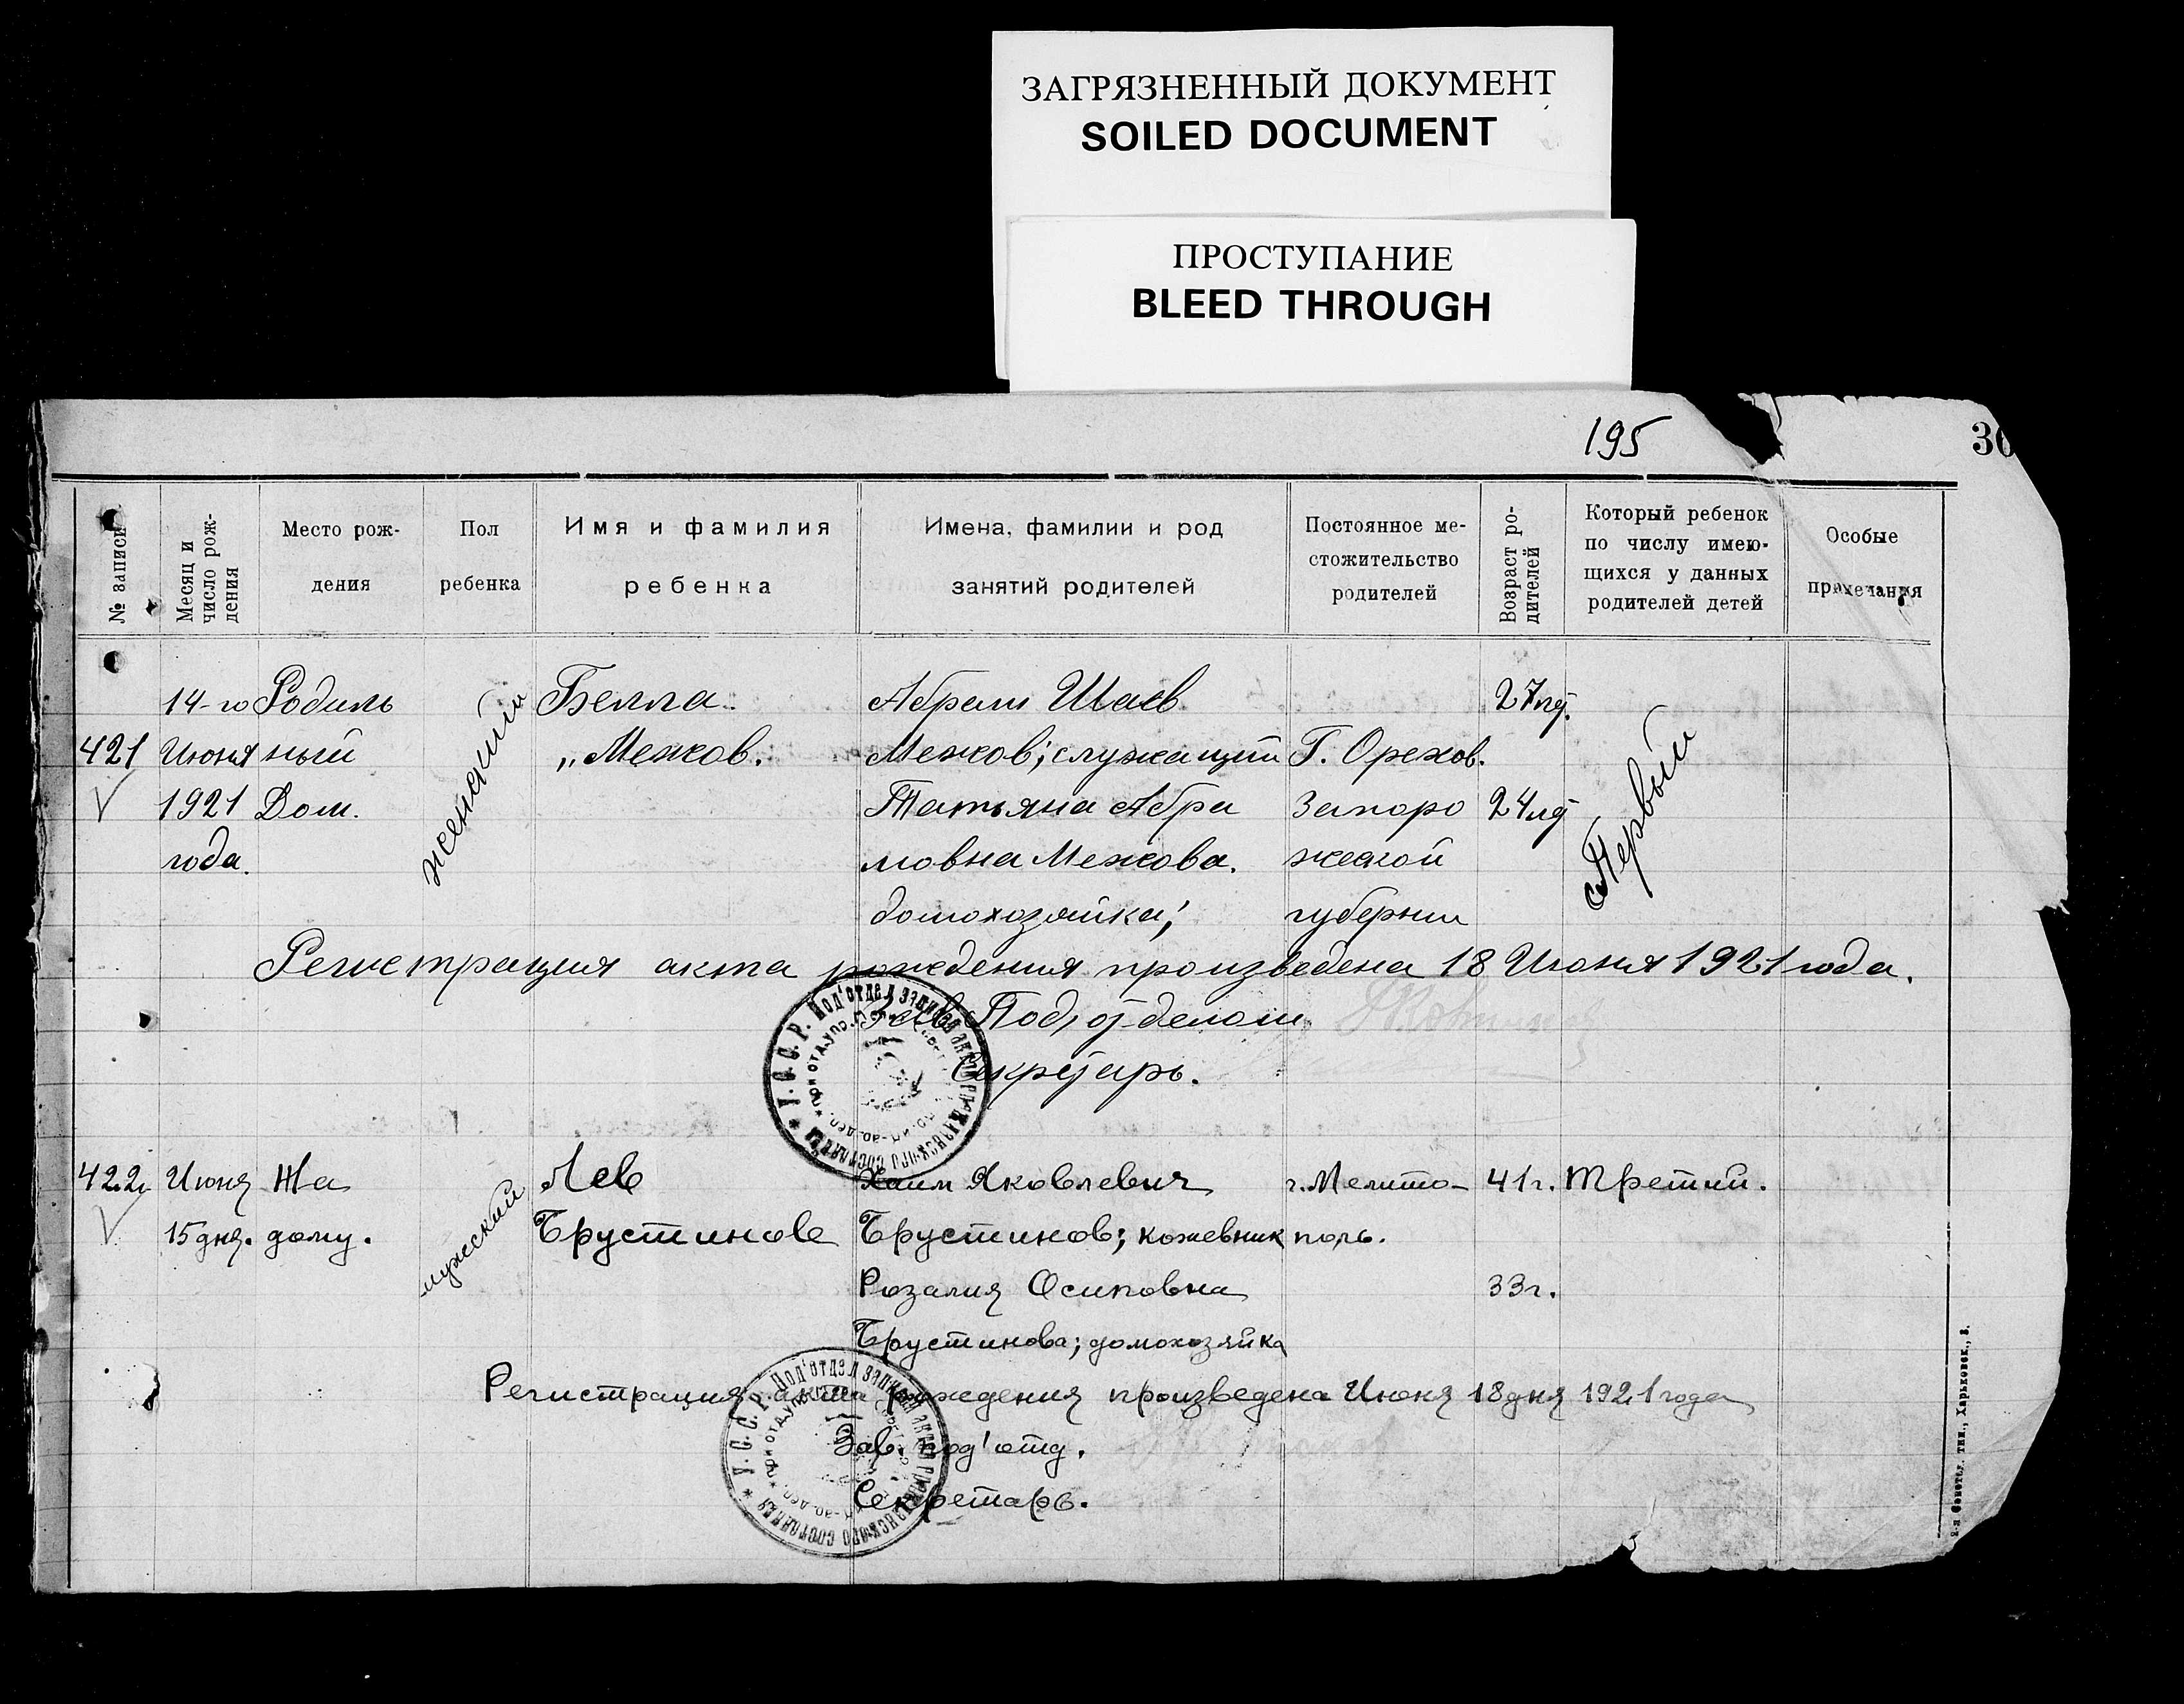 ЗАГРЯЗНЕННЫЙ ДОКУМЕНТ
SOILED DOCUMENT
ПРОСТУПАНИЕ
BLEED THROUGH
195
30
№ записи
Месяц и число рождения
Место рож-
дения
Пол
ребенка
Имя и фамилия
ребенка
Имена, фамилии и род
занятий родителей
Постоянное ме-
стожительство
родителей
Возраст ро-
дителей
Который ребенок
по числу имею-
щихся у данных
родителей детей
Особые
примечания
14-го Родиль Белла Абрам Шаев 27
421 Июня ный женский „Межов. Межов; служащий Г. Орехов. Первый
1921 Дом. Татьяна Абра Запоро 24
года. мовна Межова. жской
домохозяйка; губернии
Регистрация акта рождения произведена 18 Июня 1921 года.
Зав Под'отделом
Секретарь.
У.С.С.Р. Под'отдел записи актов гражданского состояния
422 Июня На мужский Лев Хаим Яковлевич г. Мелито- 41 г. Третий.
15 дня. дому. Брустинов Брустинов; кожевник поль.
Розалия Осиповна 33 г.
Брустинова; домохозяйка
Регистрация акта рождения произведена Июня 18 дня 1921 года
Зав. под'отд.
Секретарь.
У.С.С.Р. Под'отдел записи актов гражданского состояния